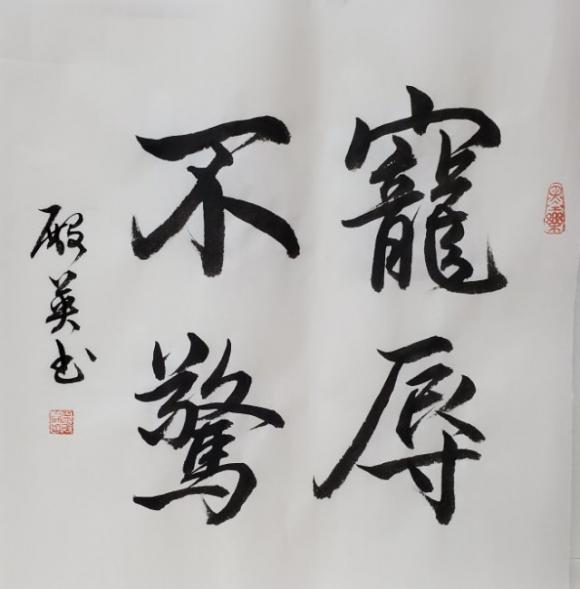 寵辱
不驚
殿英书